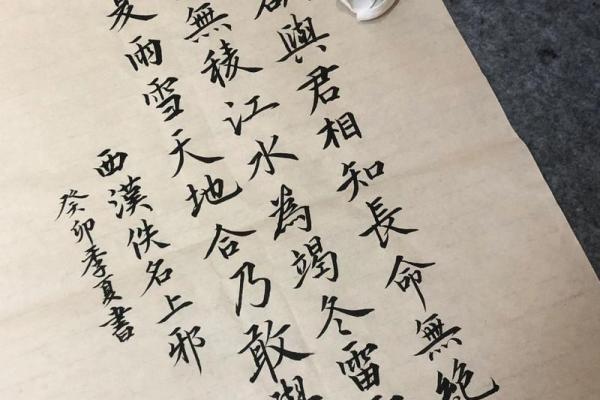 與君相知長命無絕
無稜江水為竭冬雷
夏雨雪天地合乃敢與
西漢佚名上邪
癸卯季夏書